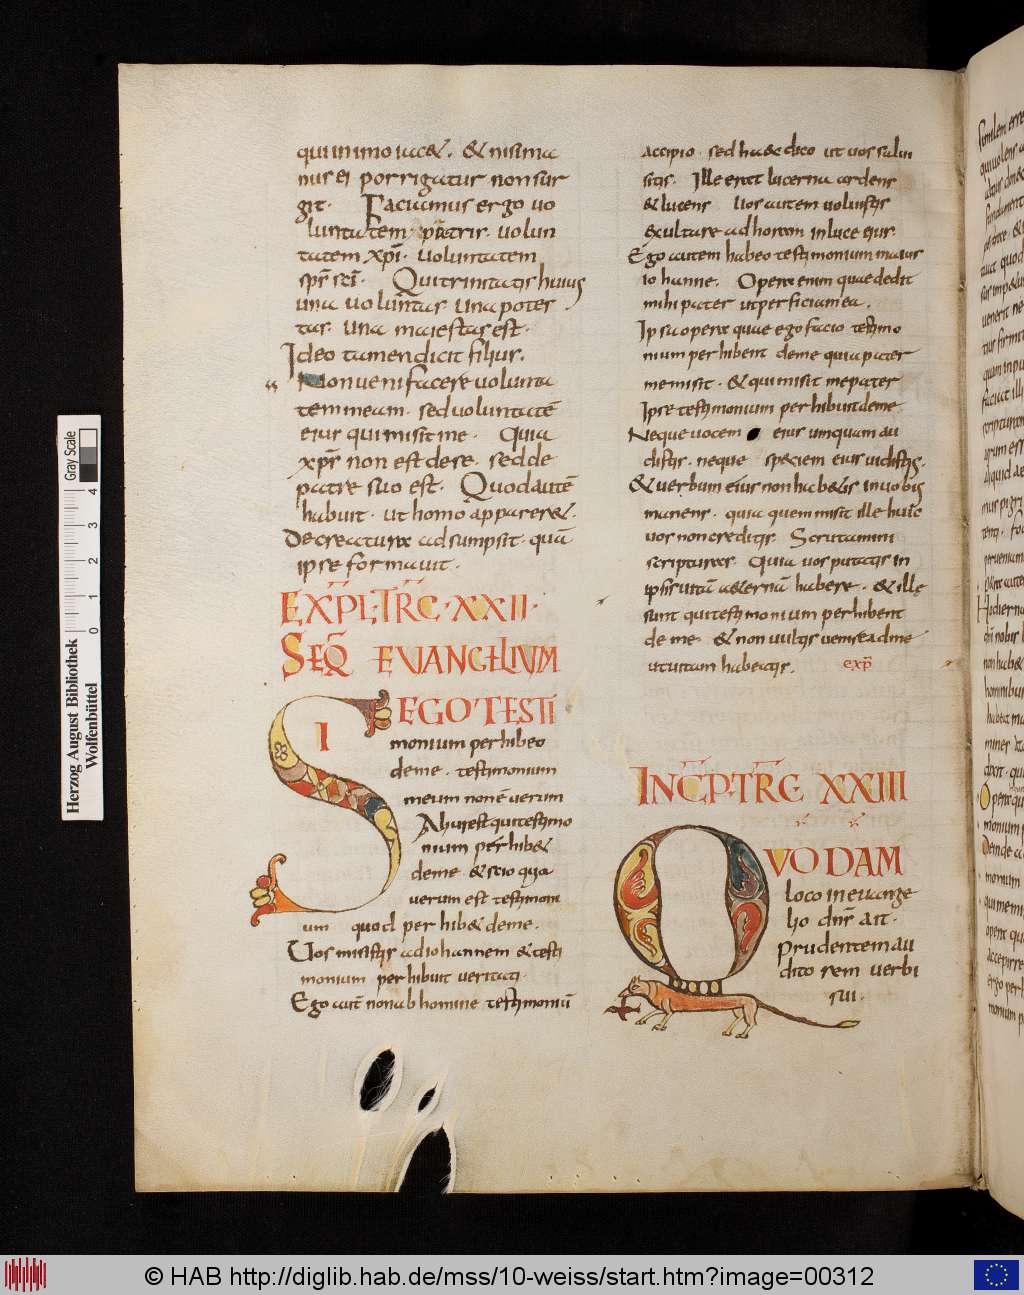 qui in imo iac&. & nisi ma
nus ei porrigatur non sur
git. Faciamus ergo uo
luntatem patris. uolun
tatem xpi. uoluntatem
sps sci. Qui trinitatis huius
una uoluntas una potes
tas. una maiestas est.
Ideo tamen dicit filius.
Non ueni facere uolunta
tem meam. sed uoluntatē
eius qui misit me. Quia
xps non est de se. sed de
patre suo est. Quod autē
habuit. ut homo apparer&.
De creatura adsumpsit. quā
ipse formauit.
EXPL. TRC. XXII.
SEQ EVANGELIUM
SI EGO TESTI
monium perhibeo
de me. testimonium
meum non ē uerum
Alius est qui testimo
nium perhib&
de me. & scio quia
uerum est testimoni
um quod perhib& de me.
Uos misistis ad iohannem & testi
monium perhibuit ueritati.
Ego autē non ab homine testimoniū
accipio. sed haec dico ut uos salui
sitis. Ille erat lucerna ardens
& lucens. Uos autem uoluistis
exultare ad horam in luce eius.
Ego autem habeo testimonium maius
iohanne. Opera enim quae dedit
mihi pater ut perficiam ea.
Ipsa opera quae ego facio testimo
nium perhibent de me quia pater
me misit. & qui misit me pater
Ipse testimonium perhibuit de me
Neque uocem eius umquam au
distis. neque speciem eius uidistis.
& uerbum eius non hab&is in uobis
manens. quia quem misit ille huic
uos non creditis. Scrutamini
scripturas. Quia uos putatis in
ipsis uitā a&ernā habere. & illę
sunt qui testimonium perhibent
de me. & non uultis uenire ad me
ut uitam habeatis. exp
INCP. TRC XXIII
QUODAM
loco in euange
lio dns ait.
Prudentem au
ditorem uerbi
sui.
Herzog August Bibliothek
Wolfenbüttel
0 1 2 3 4
Gray Scale
© HAB http://diglib.hab.de/mss/10-weiss/start.htm?image=00312